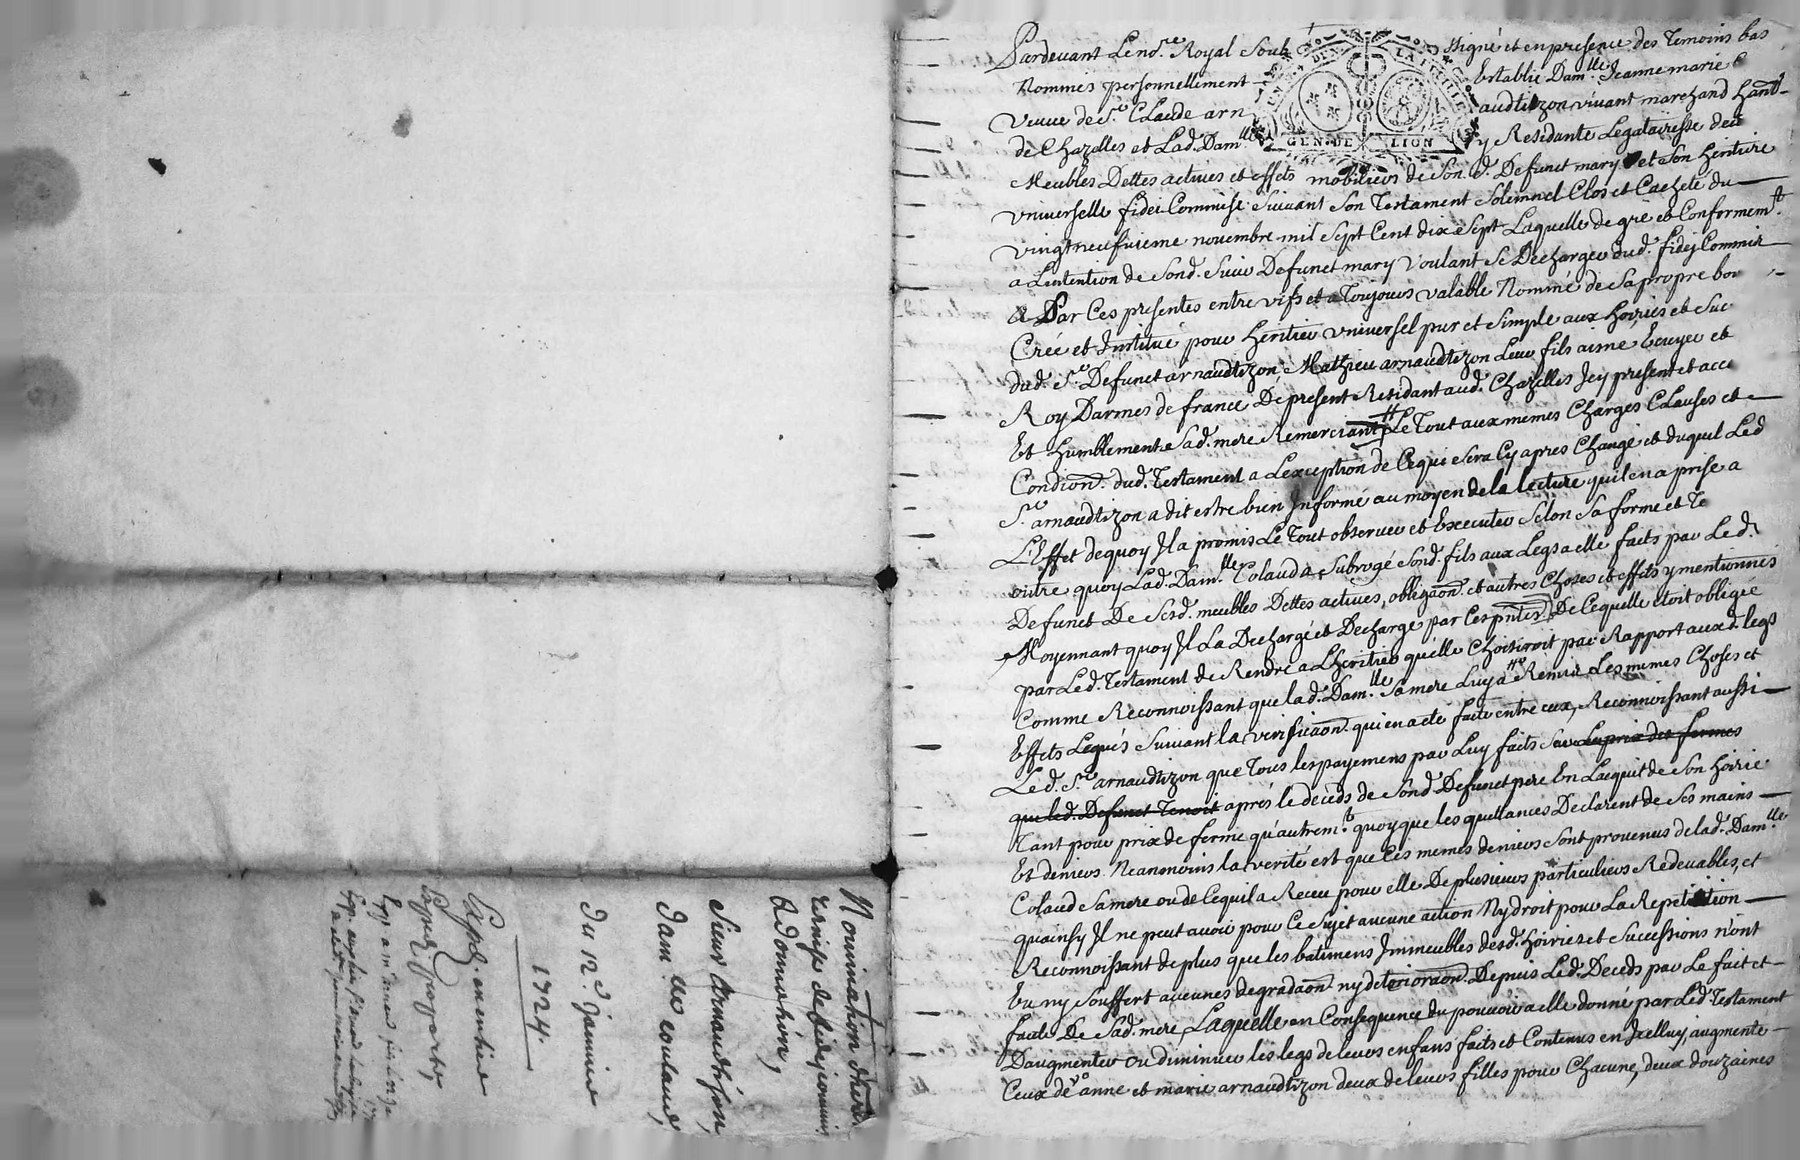 Pardevant Le no.re Royal Soub signé et en presence des Temoins bas
Nommés personnellement Establie Dam.lle Jeanne marie C
Veuve de S.r Claude arn audtizon vivant marchand hant
de Chazelles et Lad. Dam.lle y Residante Legatairesse des
GEN. DE LION
Meubles Dettes actives et effets mobiliers de Son d. Defunct mary et Son heritiere
Universelle fidei Commise Suivant Son Testament Solemnel Clos et Cacheté du
vingt neufvieme novembre mil Sept Cent dix Sept Laquelle de gré et Conformem.t
a Lintention de Sond. Sieur Defunct mary Voulant Se Decharger dud. fidei Commis
a Par Ces presentes entre vifs et a Toujours valable Nommé de Sa propre bou
Créé et Institué pour heritier Universel pur et Simple aux hoiries et Suc
dud. S.r Defunct arnaudtizon Mathieu arnaudtizon Leur fils aisné Ecuyer et
Roy Darmes de france De present Residant aud. Chazelles Icy present et acce
Et humblement Sad. mere Remerciant Le Tout aux memes Charges Clauses et
Condiôn. dud. Testament a Lexception de Ce qui Sera Cy apres Changé et duquel Led
S.r arnaudtizon a dit estre bien Informé au moyen de la lecture quil en a prise a
L'Effet dequoy Il a promis Le Tout observer et Executer Selon Sa forme et Te
outre quoy Lad. Dam.lle Colaud a Subrogé Sond. fils aux Legs a elle faits par Led.
Defunct De Sesd. meubles Dettes actives, obligaôn. et autres Choses et effets y mentionnés
Moyennant quoy Il La Dechargé et Decharge par Ces pntes De Cequelle étoit obligée
par Led. Testament de Rendre a L'heritier quélle Choisiroit par Rapport aux d. legs
Comme Reconnoissant que la d. Dam.lle Sa mere Luy a Remis Les memes Choses et
Effets Legués Suivant la verificaôn. qui en a eté faite entre eux, Reconnoissant aussi
Led. S.r arnaudtizon que Tous les payemens par Luy faits Sur Le prix des fermes
que led. Defunct Tenoit aprés le deceds de Sond Defunct pere En Lacquit de Son hoirie
Tant pour prix de ferme qu'autrem.t quoyque les quittances Declarent de Ses mains
Et deniers Neanmoins la verité est que Ces memes deniers Sont provenus de lad. Dam.lle
Colaud Sa mere ou de Cequil a Receu pour elle De plusieurs particuliers Redevables, et
quainsy Il ne peut avoir pour Ce Sujet aucune action Ny droit pour La Repetition
Reconnoissant de plus que les batimens Immeubles desd. hoiries et Successions n'ont
Eu ny Souffert aucunes degradaôn ny deterioraôn. Depuis Led. Deceds par Le fait et
faute De Sad. mere, Laquelle en Consequence du pouvoir a elle donné par Led. Testament
Daugmenter ou diminuer les legs de leurs enfans faits et Contenus en Icelluy, augmente
Ceux de anne et marie arnaudtizon deux de leurs filles pour Chacune, deux douzaines
Nomination
remise de fideicommis
& Donnation,
Sieur Arnaudtison,
Dam.lle coulaud,
Du 12.e Janvier
1724.
Exp. en entier